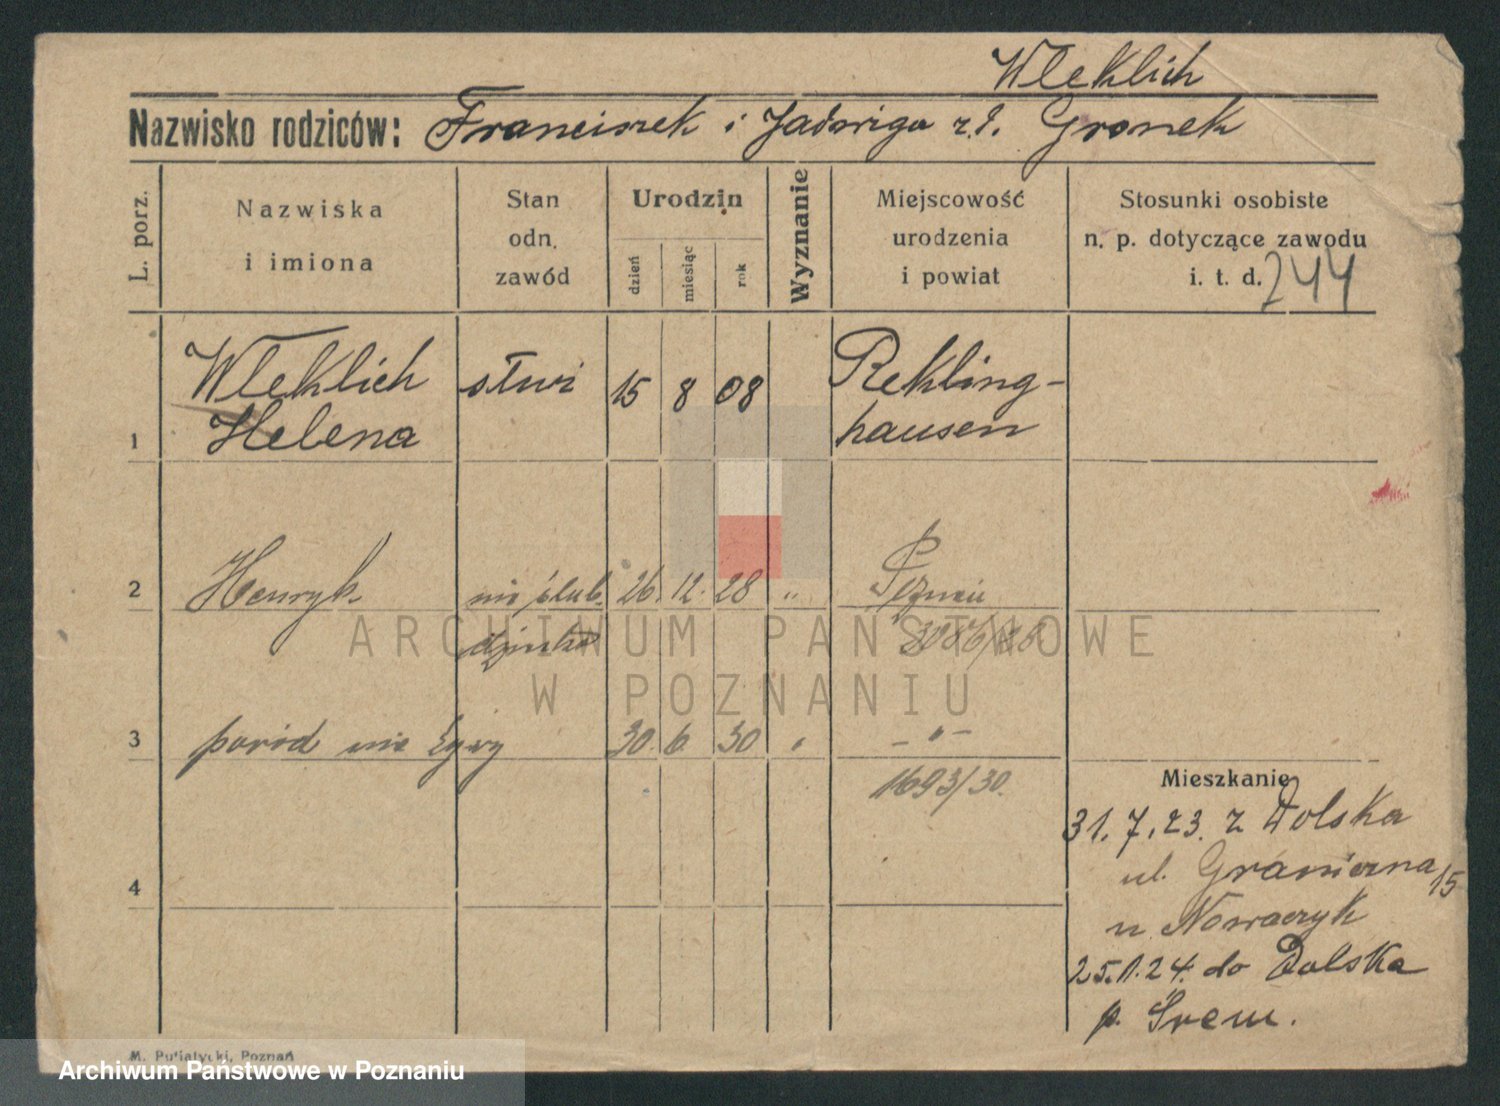 Wleklich
Nazwisko rodziców: Franciszek i Jadwiga z d. Gronek
L. porz.
Nazwiska
i imiona
Stan
odn.
zawód
Urodzin
dzień
miesiąc
rok
Wyznanie
Miejscowość
urodzenia
i powiat
Stosunki osobiste
n. p. dotyczące zawodu
i. t. d. 244
1
Wleklich
Helena
służ
15 8 08
Rekling-
hausen
2 Henryk nie ślub. 26. 12. 28 " Poznań
3 poród nie żywy 30. 6. 30 " - " -
1693/30.
4
Mieszkanie
31. 7. 23. z Dolska
ul. Graniczna 15
u Nowaczyk
25.1.24. do Dolska
p. Śrem.
M. Putiatycki, Poznań
ARCHIWUM PAŃSTWOWE
W POZNANIU
Archiwum Państwowe w Poznaniu